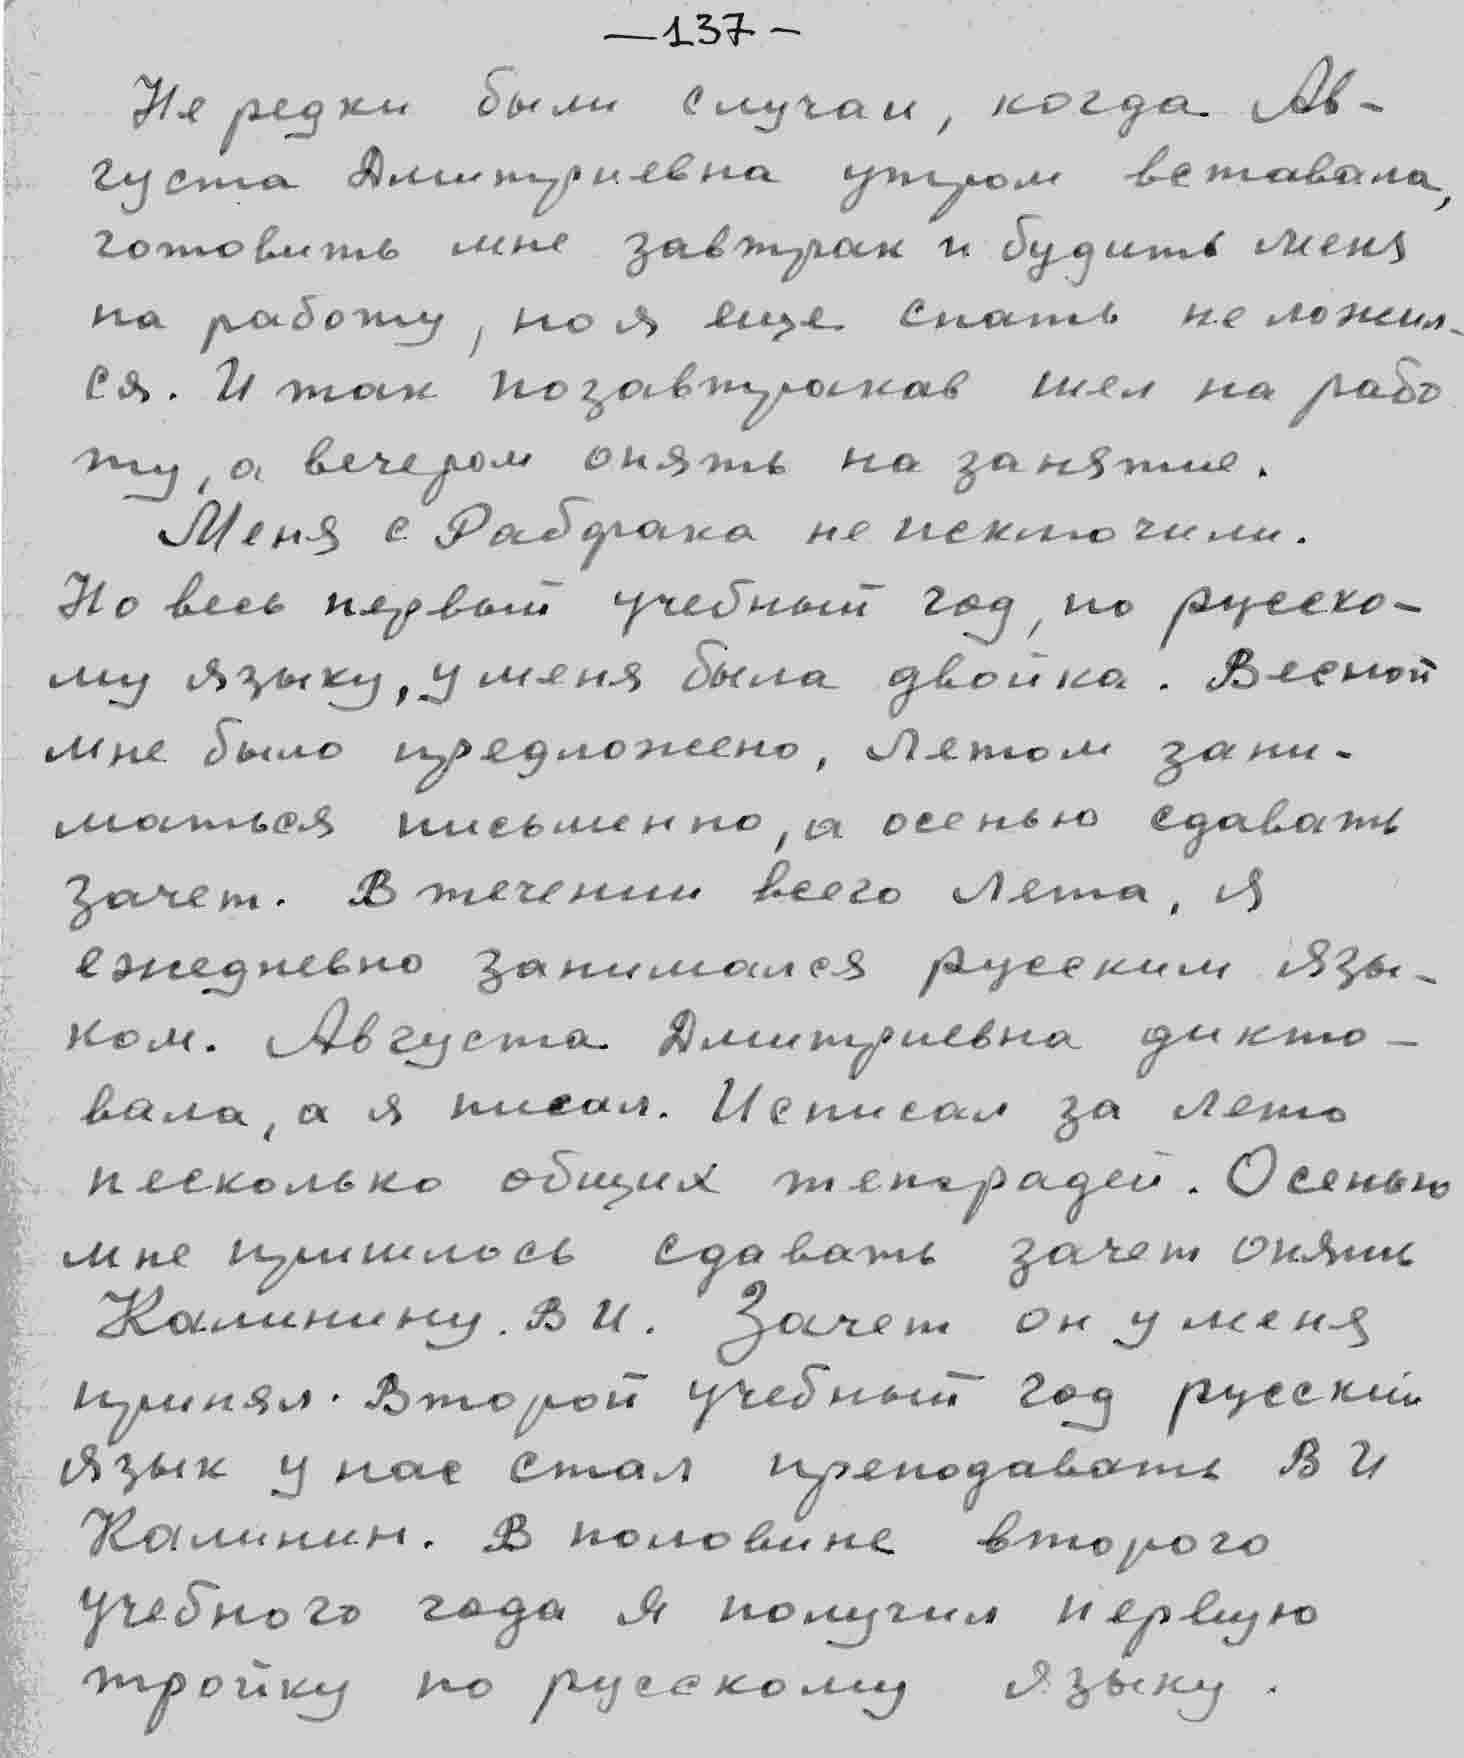 —137—
Не редки были случаи, когда Ав-
густа Дмитриевна утром вставала,
готовить мне завтрак и будить меня
на работу, но я еще спать не ложил-
ся. И так позавтракав шел на рабо
ту, а вечером опять на занятие.
Меня с Рабфака не исключили.
Но весь первый учебный год, по русско-
му языку, у меня была двойка. Весной
мне было предложено, летом зани-
маться письменно, а осенью сдавать
зачет. В течении всего лета, я
ежедневно занимался русским язы-
ком. Августа Дмитриевна дикто-
вала, а я писал. Исписал за лето
несколько общих тетрадей. Осенью
мне пришлось сдавать зачет опять
Калинину. В И. Зачет он у меня
принял. Второй учебный год русский
язык у нас стал преподавать В И
Калинин. В половине второго
учебного года я получил первую
тройку по русскому языку.